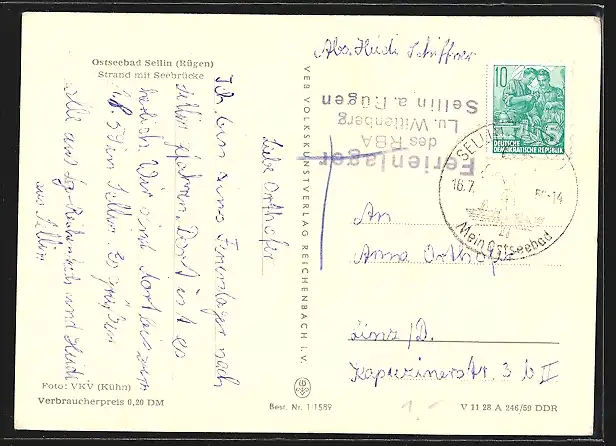 Ostseebad Sellin (Rügen)
Strand mit Seebrücke
Liebe Orthofer
Ich bin ins Ferienlager nach
Sellin gefahren. Dort ist es
herrlich. Wir sind dort bis zum
1.8.59 in Sellin. Es grüßen
alle aus
Reichenbach und Heidi
aus Sellin
Foto: VKV (Kühn)
Verbraucherpreis 0,20 DM
VEB VOLKSKUNSTVERLAG REICHENBACH I. V.
Best. Nr. 1 1589
Abs. Heidi Schiffner
Ferienlager
des RBA
Lu. Wittenberg
Sellin a. Rügen
10
5
DEUTSCHE
DEMOKRATISCHE REPUBLIK
SELLIN
16.7. -14
Mein Ostseebad
An
Anna Orthofer
Linz/D.
Kapuzinerstr. 3 b II
1,-
V 11 28 A 246/59 DDR